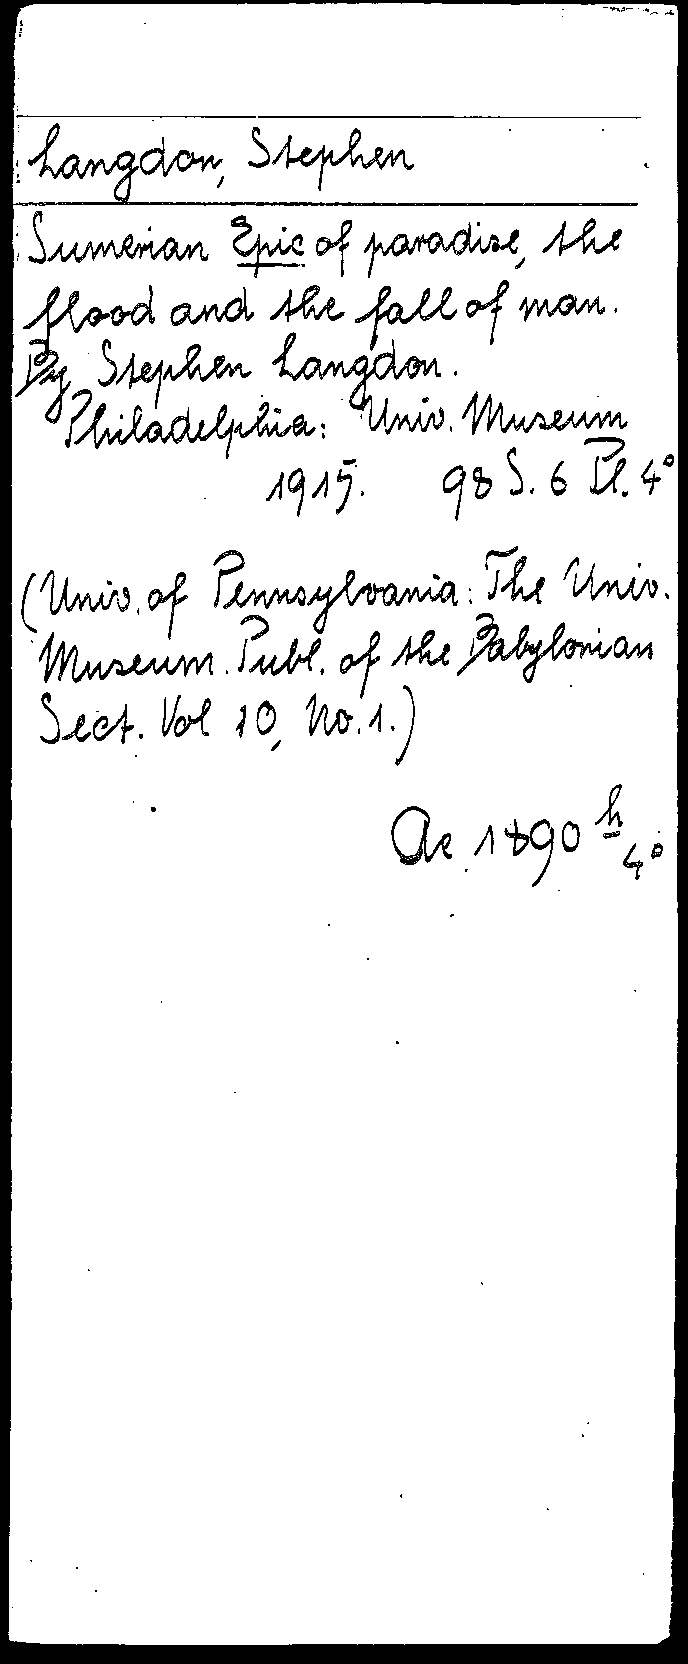 Langdon, Stephen
Sumerian Epic of paradise, the
flood and the fall of man.
By Stephen Langdon.
Philadelphia: Univ. Museum
1915. 98 S. 6 Pl. 4°
(Univ. of Pennsylvania: The Univ.
Museum. Publ. of the Babylonian
Sect. Vol 10, No. 1.)
Ac 1890 h 4°